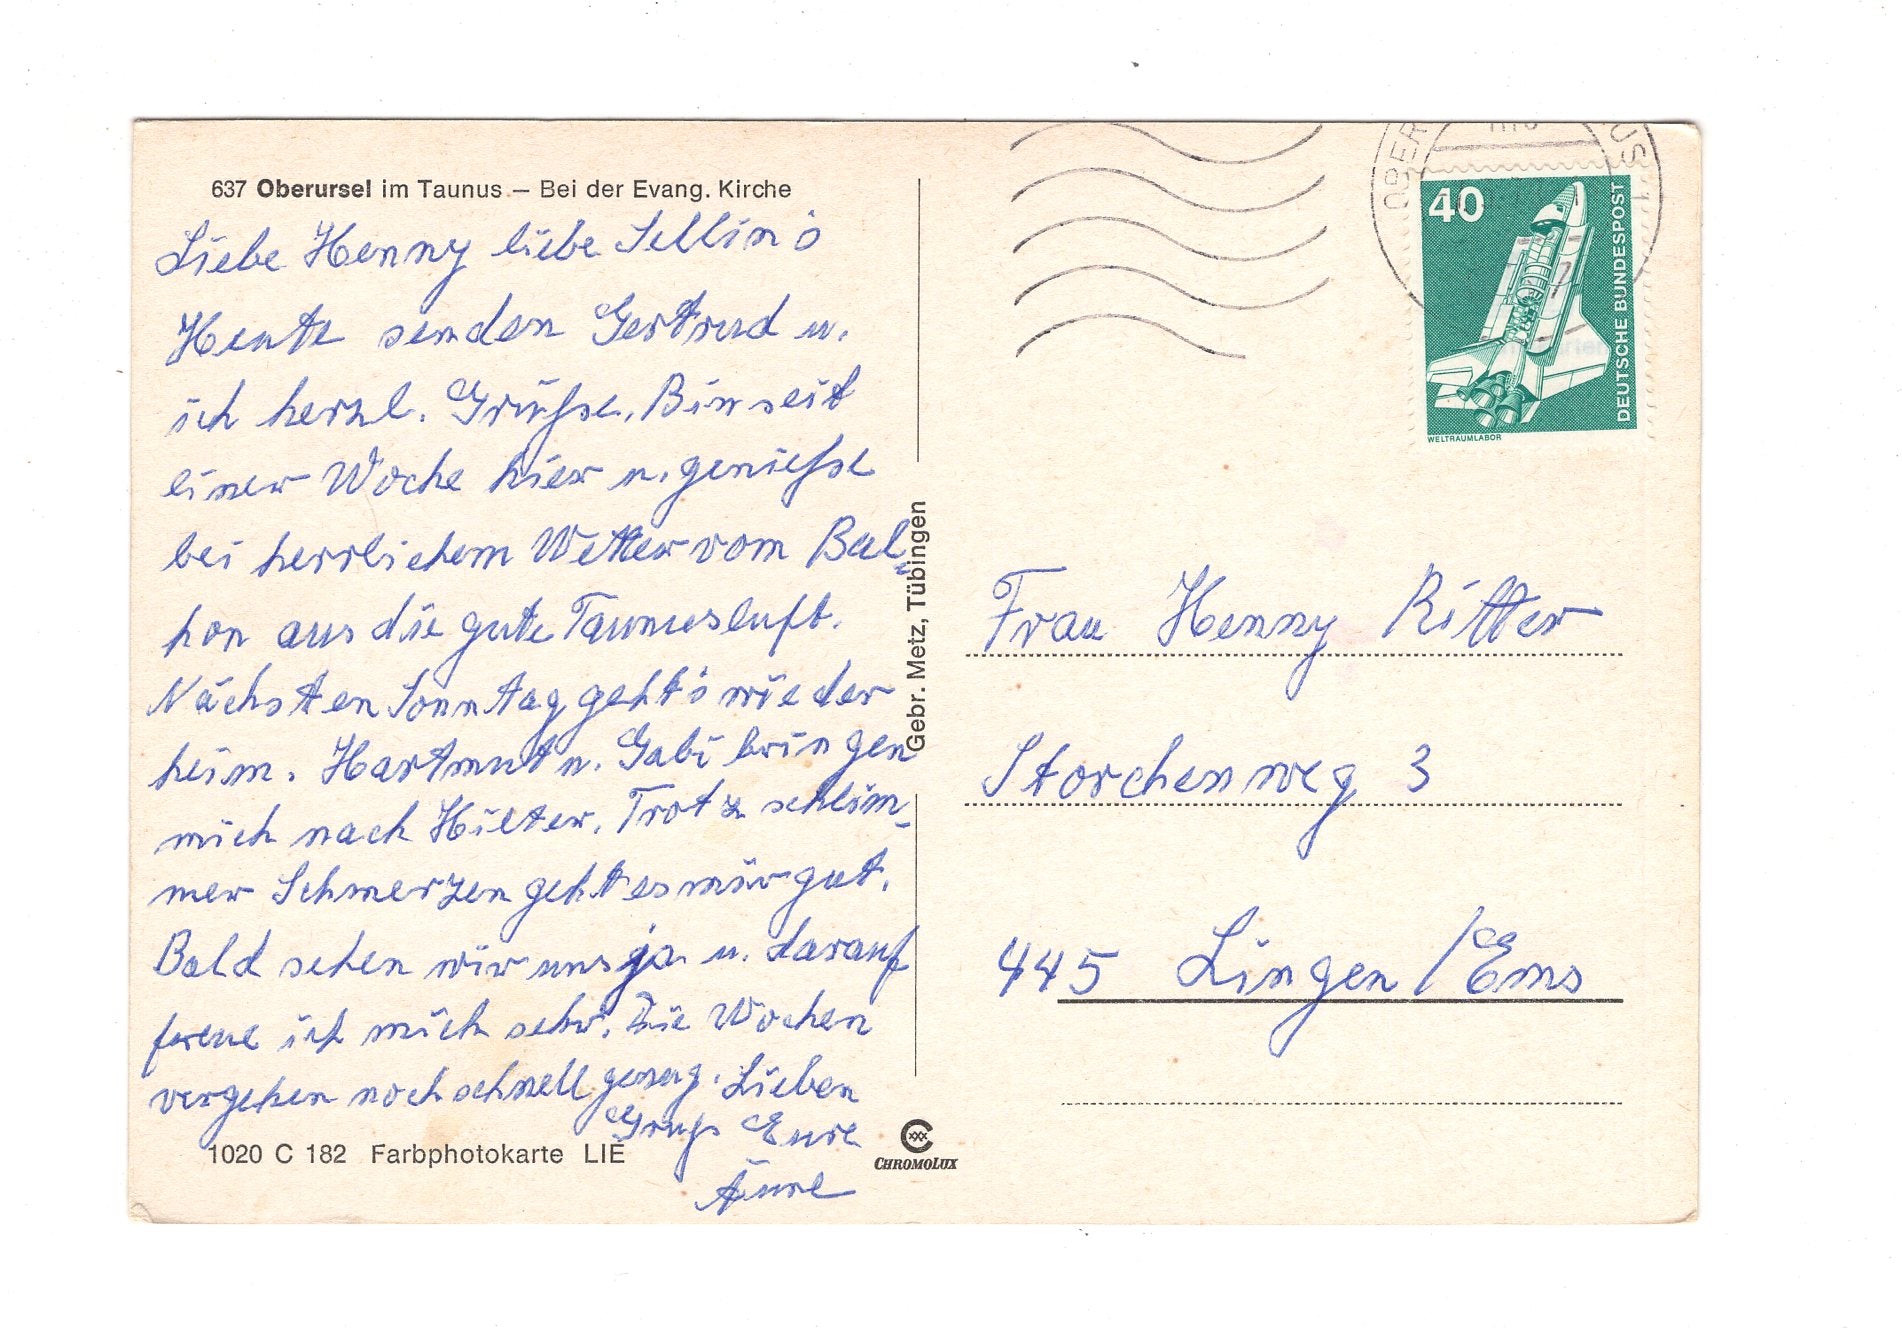 637 Oberursel im Taunus – Bei der Evang. Kirche
Liebe Henny liebe Sellin's
Heute senden Gertrud u.
ich herzl. Grüße. Bin seit
einer Woche hier u. genieße
bei herrlichem Wetter vom Bal-
kon aus die gute Taunusluft.
Nächsten Sonntag geht's wieder
heim. Hartmut u. Gabi bringen
mich nach Hilter. Trotz schlim-
mer Schmerzen geht es mir gut.
Bald sehen wir uns ja u. darauf
freue ich mich sehr. Die Wochen
vergehen noch schnell genug. Lieben
Gruß Eure
Änne
1020 C 182 Farbphotokarte LIE
Gebr. Metz, Tübingen
CHROMOLUX
40
DEUTSCHE BUNDESPOST
WELTRAUMLABOR
Frau Henny Ritter
Storchenweg 3
445 Lingen/Ems